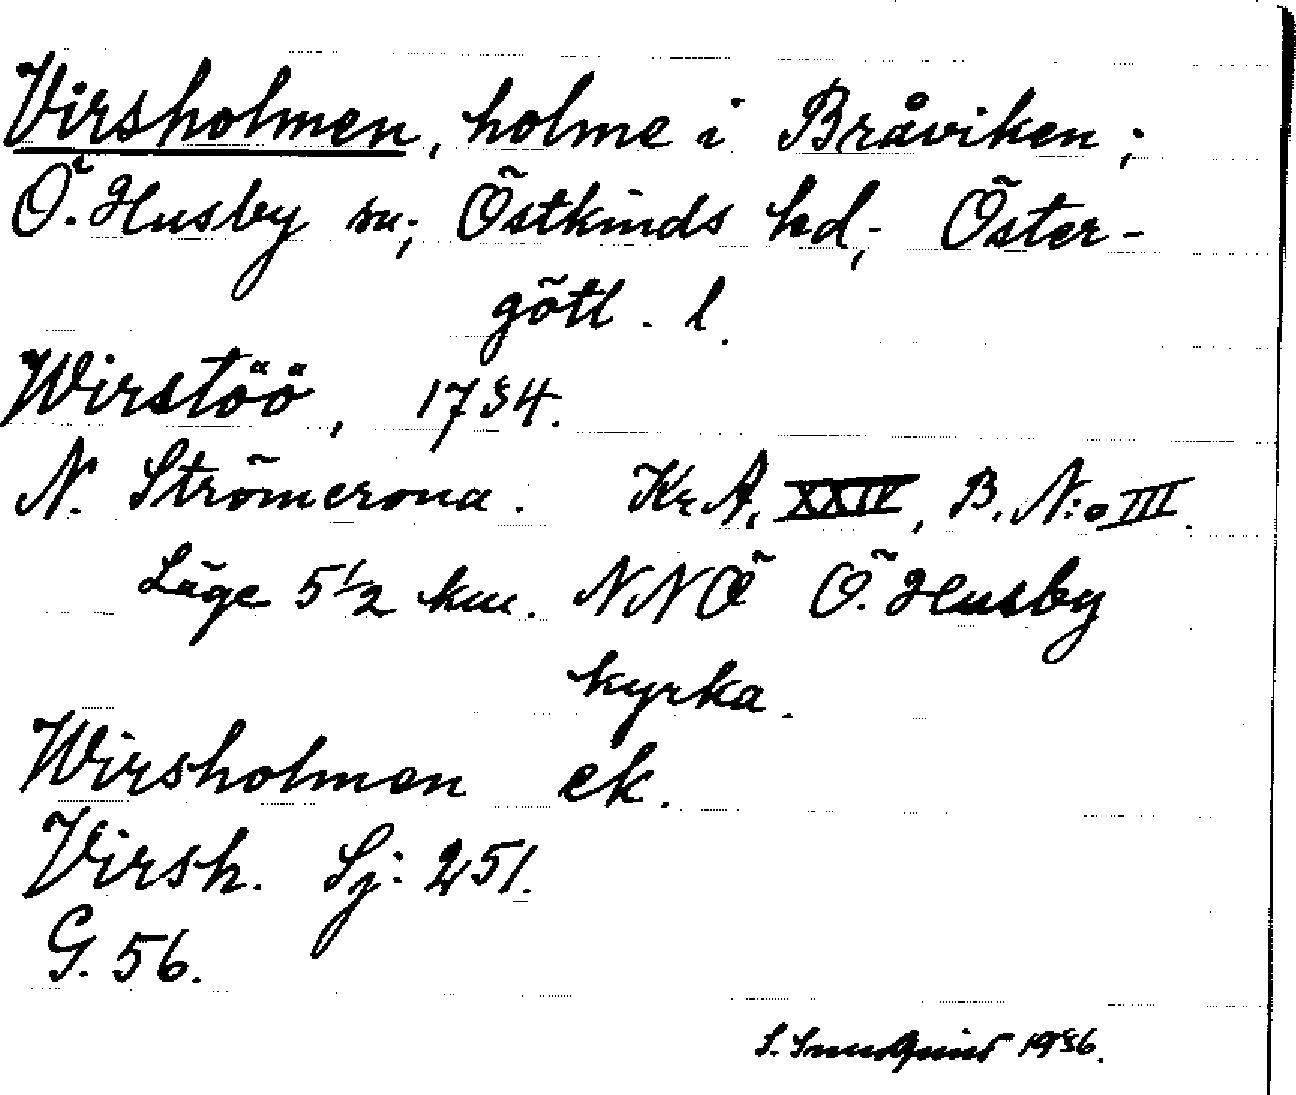 Virsholmen, holme i Bråviken;
Ö. Husby sn; Östkinds hd; Öster-
götl. l.
Wirstöö, 1734.
N. Strömcrona. Kr. A. XXIV, B. N:o III.
Läge 5 1/2 km. NNÖ Ö. Husby
kyrka.
Wirsholmen ek.
Virsh. Sj: 251.
G. 56.
S. 1936.